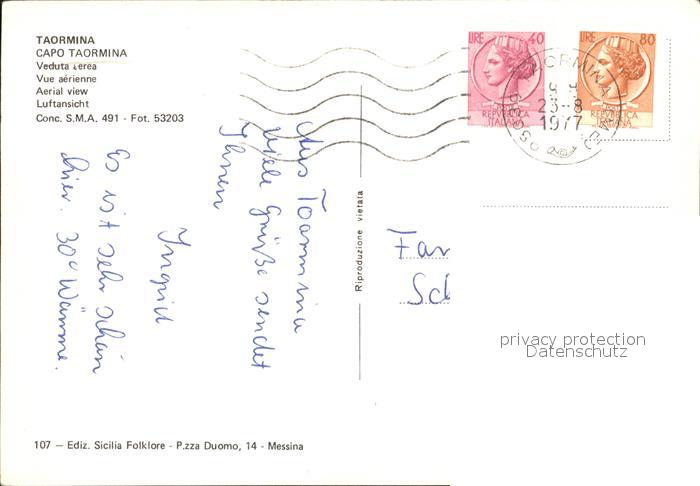 TAORMINA
CAPO TAORMINA
Veduta aerea
Vue aérienne
Aerial view
Luftansicht
Conc. S.M.A. 491 - Fot. 53203
LIRE 40
REPVBBLICA
ITALIANA
LIRE 80
REPVBBLICA
ITALIANA
TAORMINA
9 9
23-8
1977
Aus Taormina
viele Grüße sendet
Ihnen
Ingrid
Es ist sehr schön
hier. 30° Wärme.
Riproduzione vietata
Fam
Sch
privacy protection
Datenschutz
107 — Ediz. Sicilia Folklore - P.zza Duomo, 14 - Messina